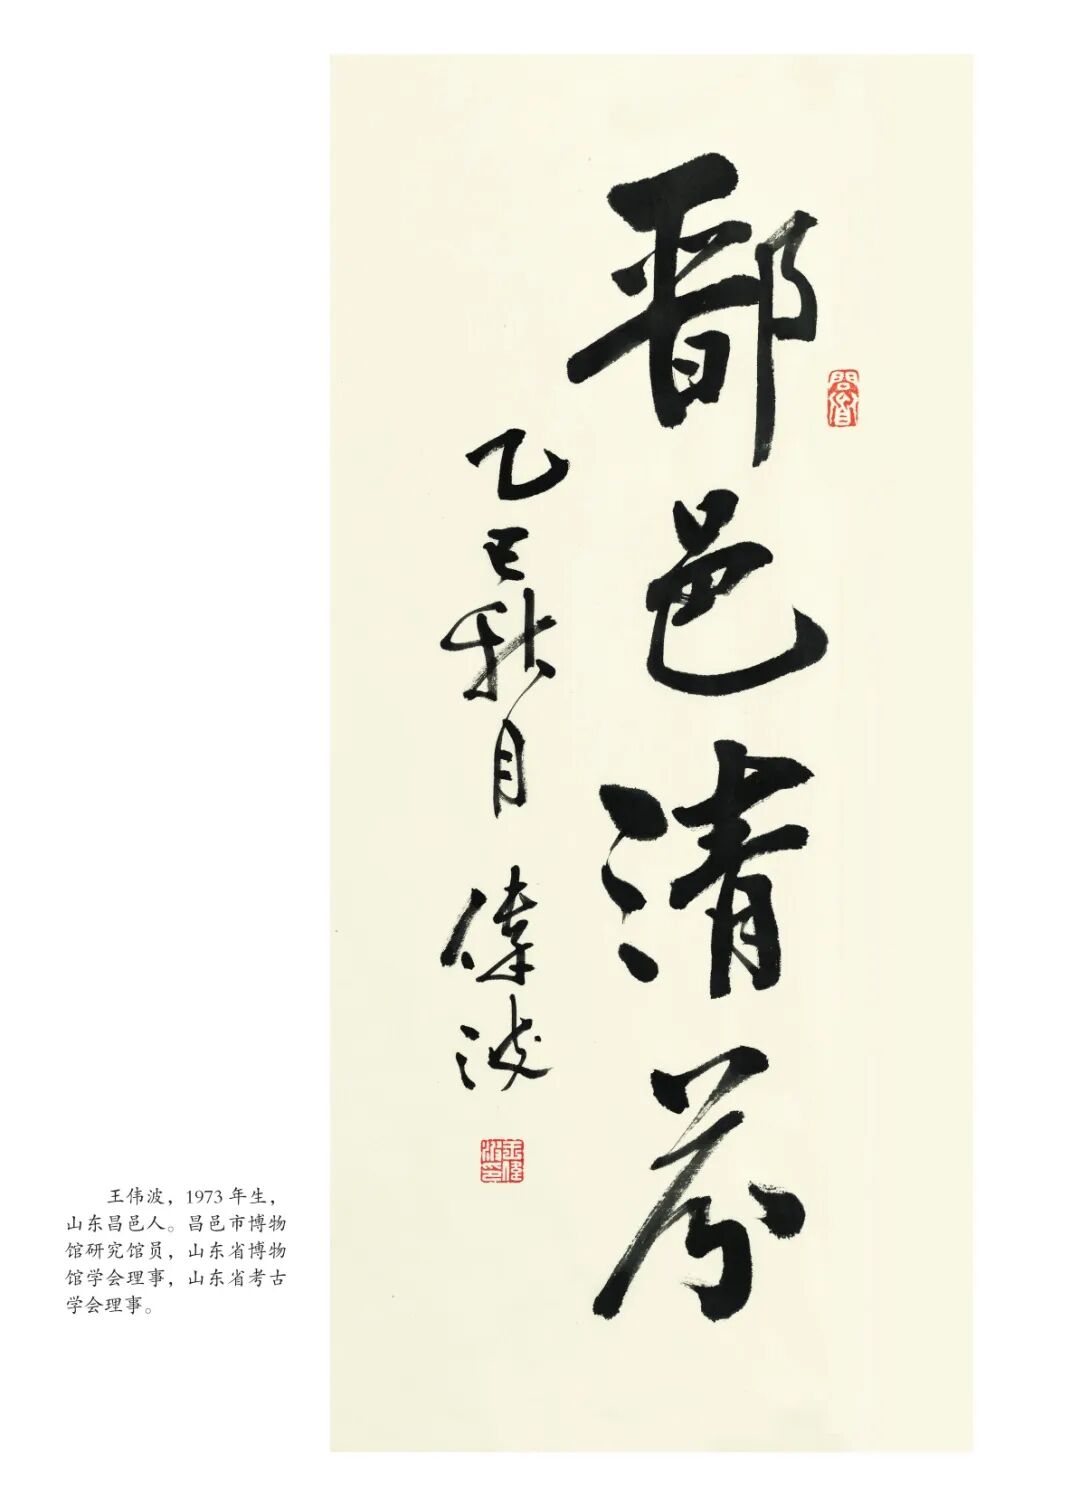 鄑邑清芬
乙巳秋月 偉波
王偉波印
王伟波，1973 年生，
山东昌邑人。昌邑市博物
馆研究馆员，山东省博物
馆学会理事，山东省考古
学会理事。